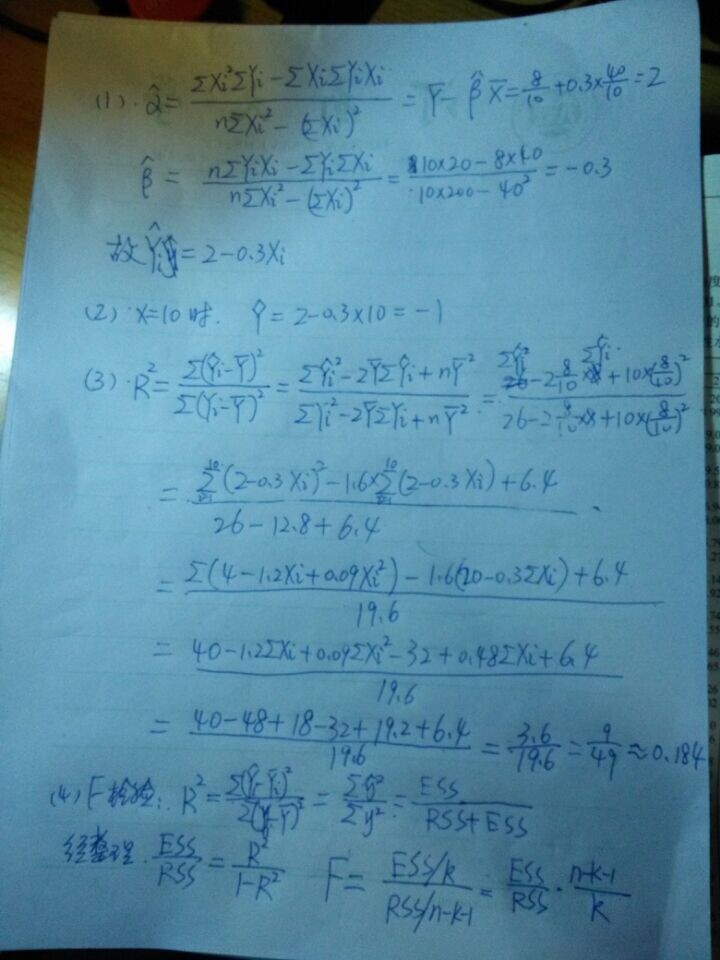 (1). α̂ = (ΣXi²ΣYi − ΣXiΣYiXi) / (nΣXi² − (ΣXi)²) = Ȳ − β̂X̄ = 8/10 + 0.3×40/10 = 2
β̂ = (nΣYiXi − ΣYiΣXi) / (nΣXi² − (ΣXi)²) = (10×20 − 8×40) / (10×200 − 40²) = −0.3
故Ŷi = 2 − 0.3Xi
(2). X=10时. Ŷ = 2 − 0.3×10 = −1
(3). R² = Σ(Ŷi − Ȳ)² / Σ(Yi − Ȳ)² = (ΣŶi² − 2ȲΣŶi + nȲ²) / (ΣYi² − 2ȲΣYi + nȲ²) = (ΣŶi² − 2 8/10 × ΣŶi + 10×(8/10)²) / (26 − 2 8/10 ×8 + 10×(8/10)²)
= (Σ_{i=1}^{10}(2−0.3Xi)² − 1.6×Σ_{i=1}^{10}(2−0.3Xi) + 6.4) / (26 − 12.8 + 6.4)
= (Σ(4−1.2Xi+0.09Xi²) − 1.6(20−0.3ΣXi) + 6.4) / 19.6
= (40 − 1.2ΣXi + 0.09ΣXi² − 32 + 0.48ΣXi + 6.4) / 19.6
= (40 − 48 + 18 − 32 + 19.2 + 6.4) / 19.6 = 3.6/19.6 = 9/49 ≈ 0.184
(4) F检验: R² = Σ(Ŷi − Ȳi)² / Σ(Yi − Ȳ)² = Σŷ² / Σy² = ESS / (RSS+ESS)
经整理. ESS/RSS = R² / (1−R²) F = (ESS/k) / (RSS/n-k-1) = ESS/RSS · (n-k-1)/k